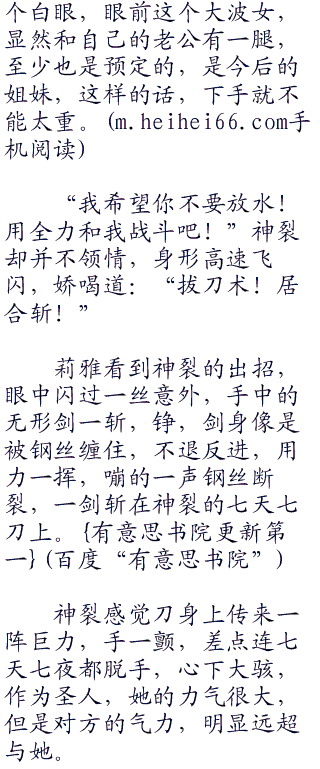 个白眼，眼前这个大波女，
显然和自己的老公有一腿，
至少也是预定的，是今后的
姐妹，这样的话，下手就不
能太重。(m.heihei66.com手
机阅读)
“我希望你不要放水！
用全力和我战斗吧！”神裂
却并不领情，身形高速飞
闪，娇喝道：“拔刀术！居
合斩！”
莉雅看到神裂的出招，
眼中闪过一丝意外，手中的
无形剑一斩，铮，剑身像是
被钢丝缠住，不退反进，用
力一挥，嘣的一声钢丝断
裂，一剑斩在神裂的七天七
刀上。{有意思书院更新第
一}(百度“有意思书院”)
神裂感觉刀身上传来一
阵巨力，手一颤，差点连七
天七夜都脱手，心下大骇，
作为圣人，她的力气很大，
但是对方的气力，明显远超
与她。